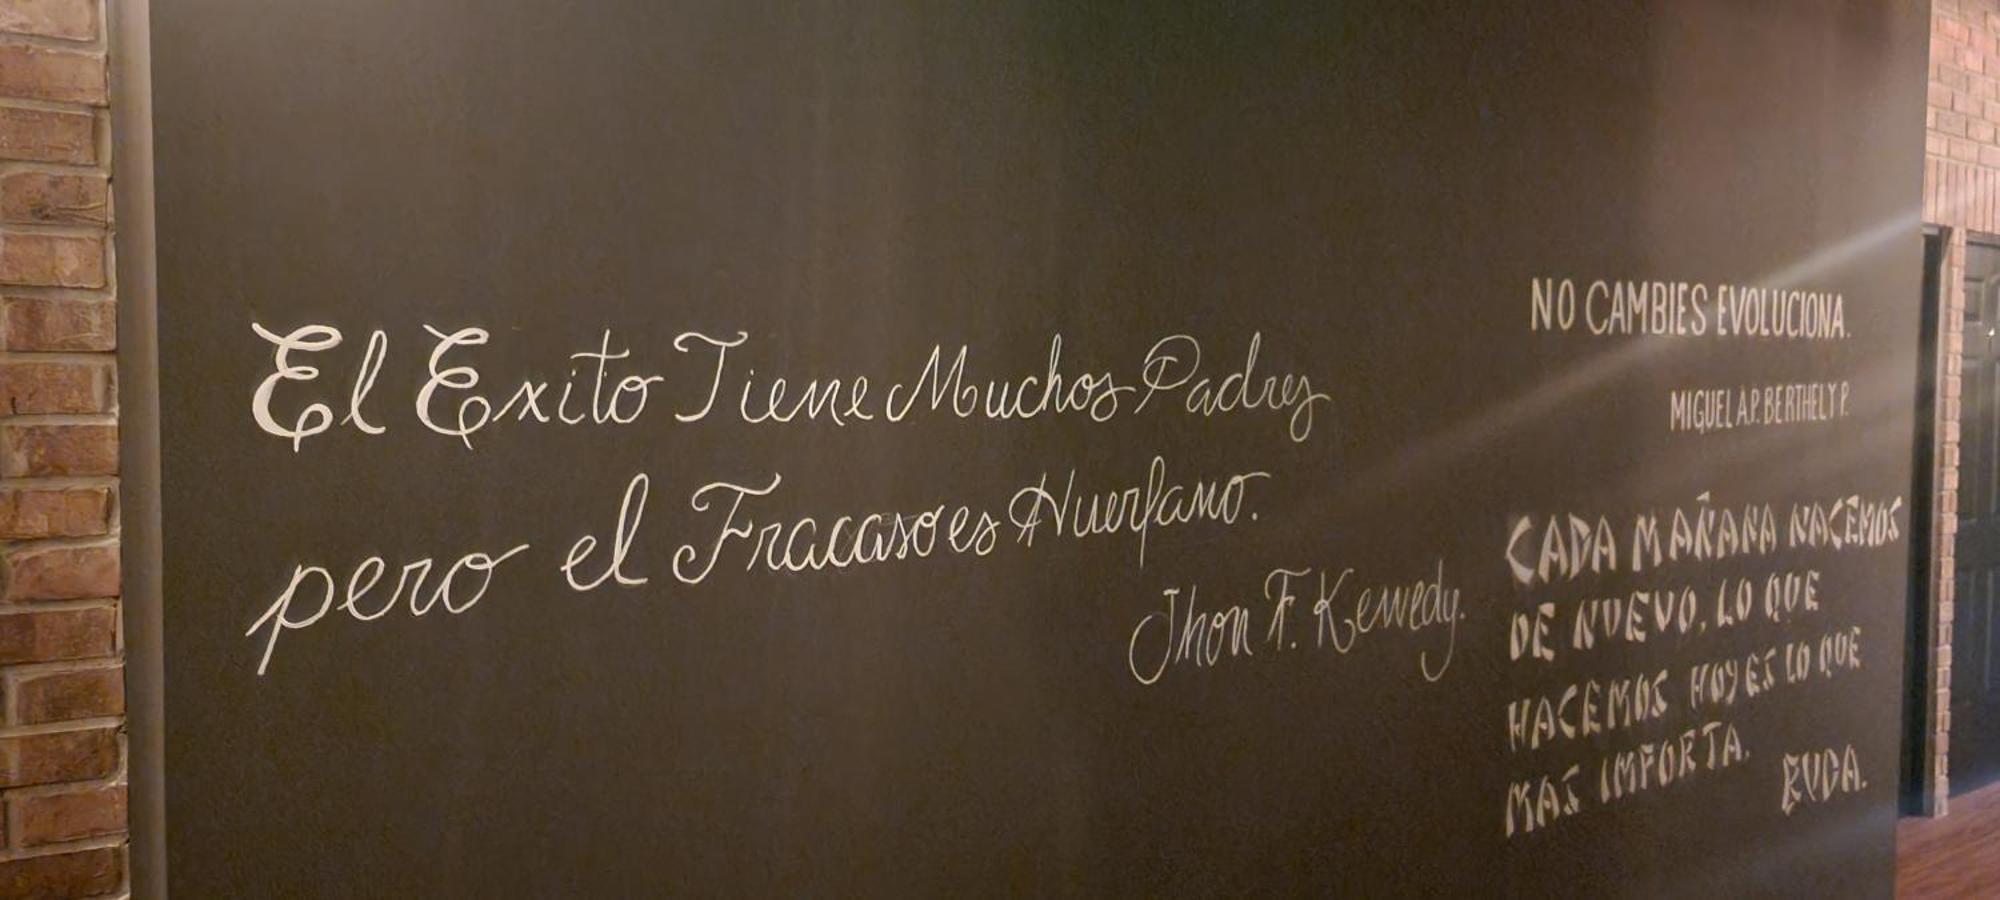 El Exito Tiene Muchos Padres
pero el Fracaso es Huerfano.
Jhon F. Kennedy.
NO CAMBIES EVOLUCIONA.
MIGUEL A.P. BERTHELY P.
CADA MAÑANA NACEMOS
DE NUEVO, LO QUE
HACEMOS HOY ES LO QUE
MAS IMPORTA.
BUDA.